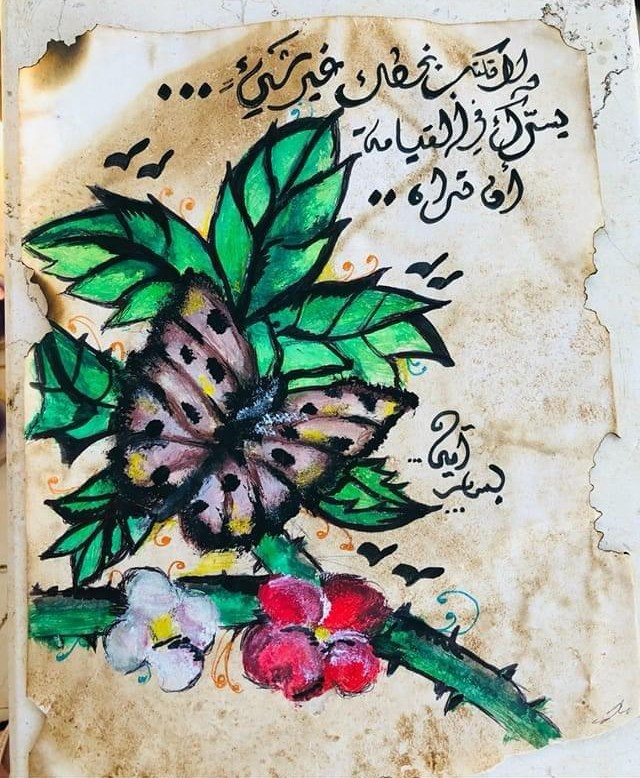 ولا تكتب بخطك غير شيءٍ ...
يسرّك في القيامة
أن تراه ..
آية ...